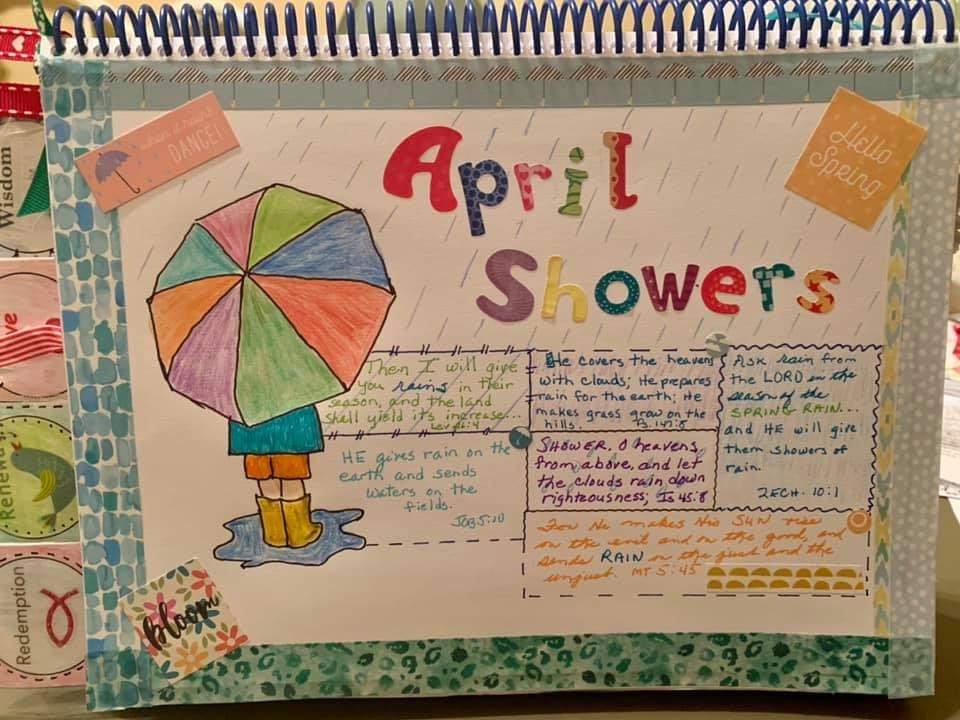 when it rains
DANCE!
April
Hello
Spring
Showers
Then I will give
you rains in their
season, and the land
shall yield its increase...
Lev 26:4
He covers the heavens
with clouds; He prepares
rain for the earth; He
makes grass grow on the
hills. Ps. 147:8
Ask rain from
the LORD in the
season of the
SPRING RAIN...
and HE will give
them showers of
rain.
ZECH. 10:1
HE gives rain on the
earth and sends
waters on the
fields.
JOB 5:10
SHOWER, O heavens,
from above, and let
the clouds rain down
righteousness; Is 45:8
For He makes His SUN rise
on the evil and on the good, and
sends RAIN on the just and the
unjust. MT 5:45
bloom
Wisdom
ve
Renewal
Redemption